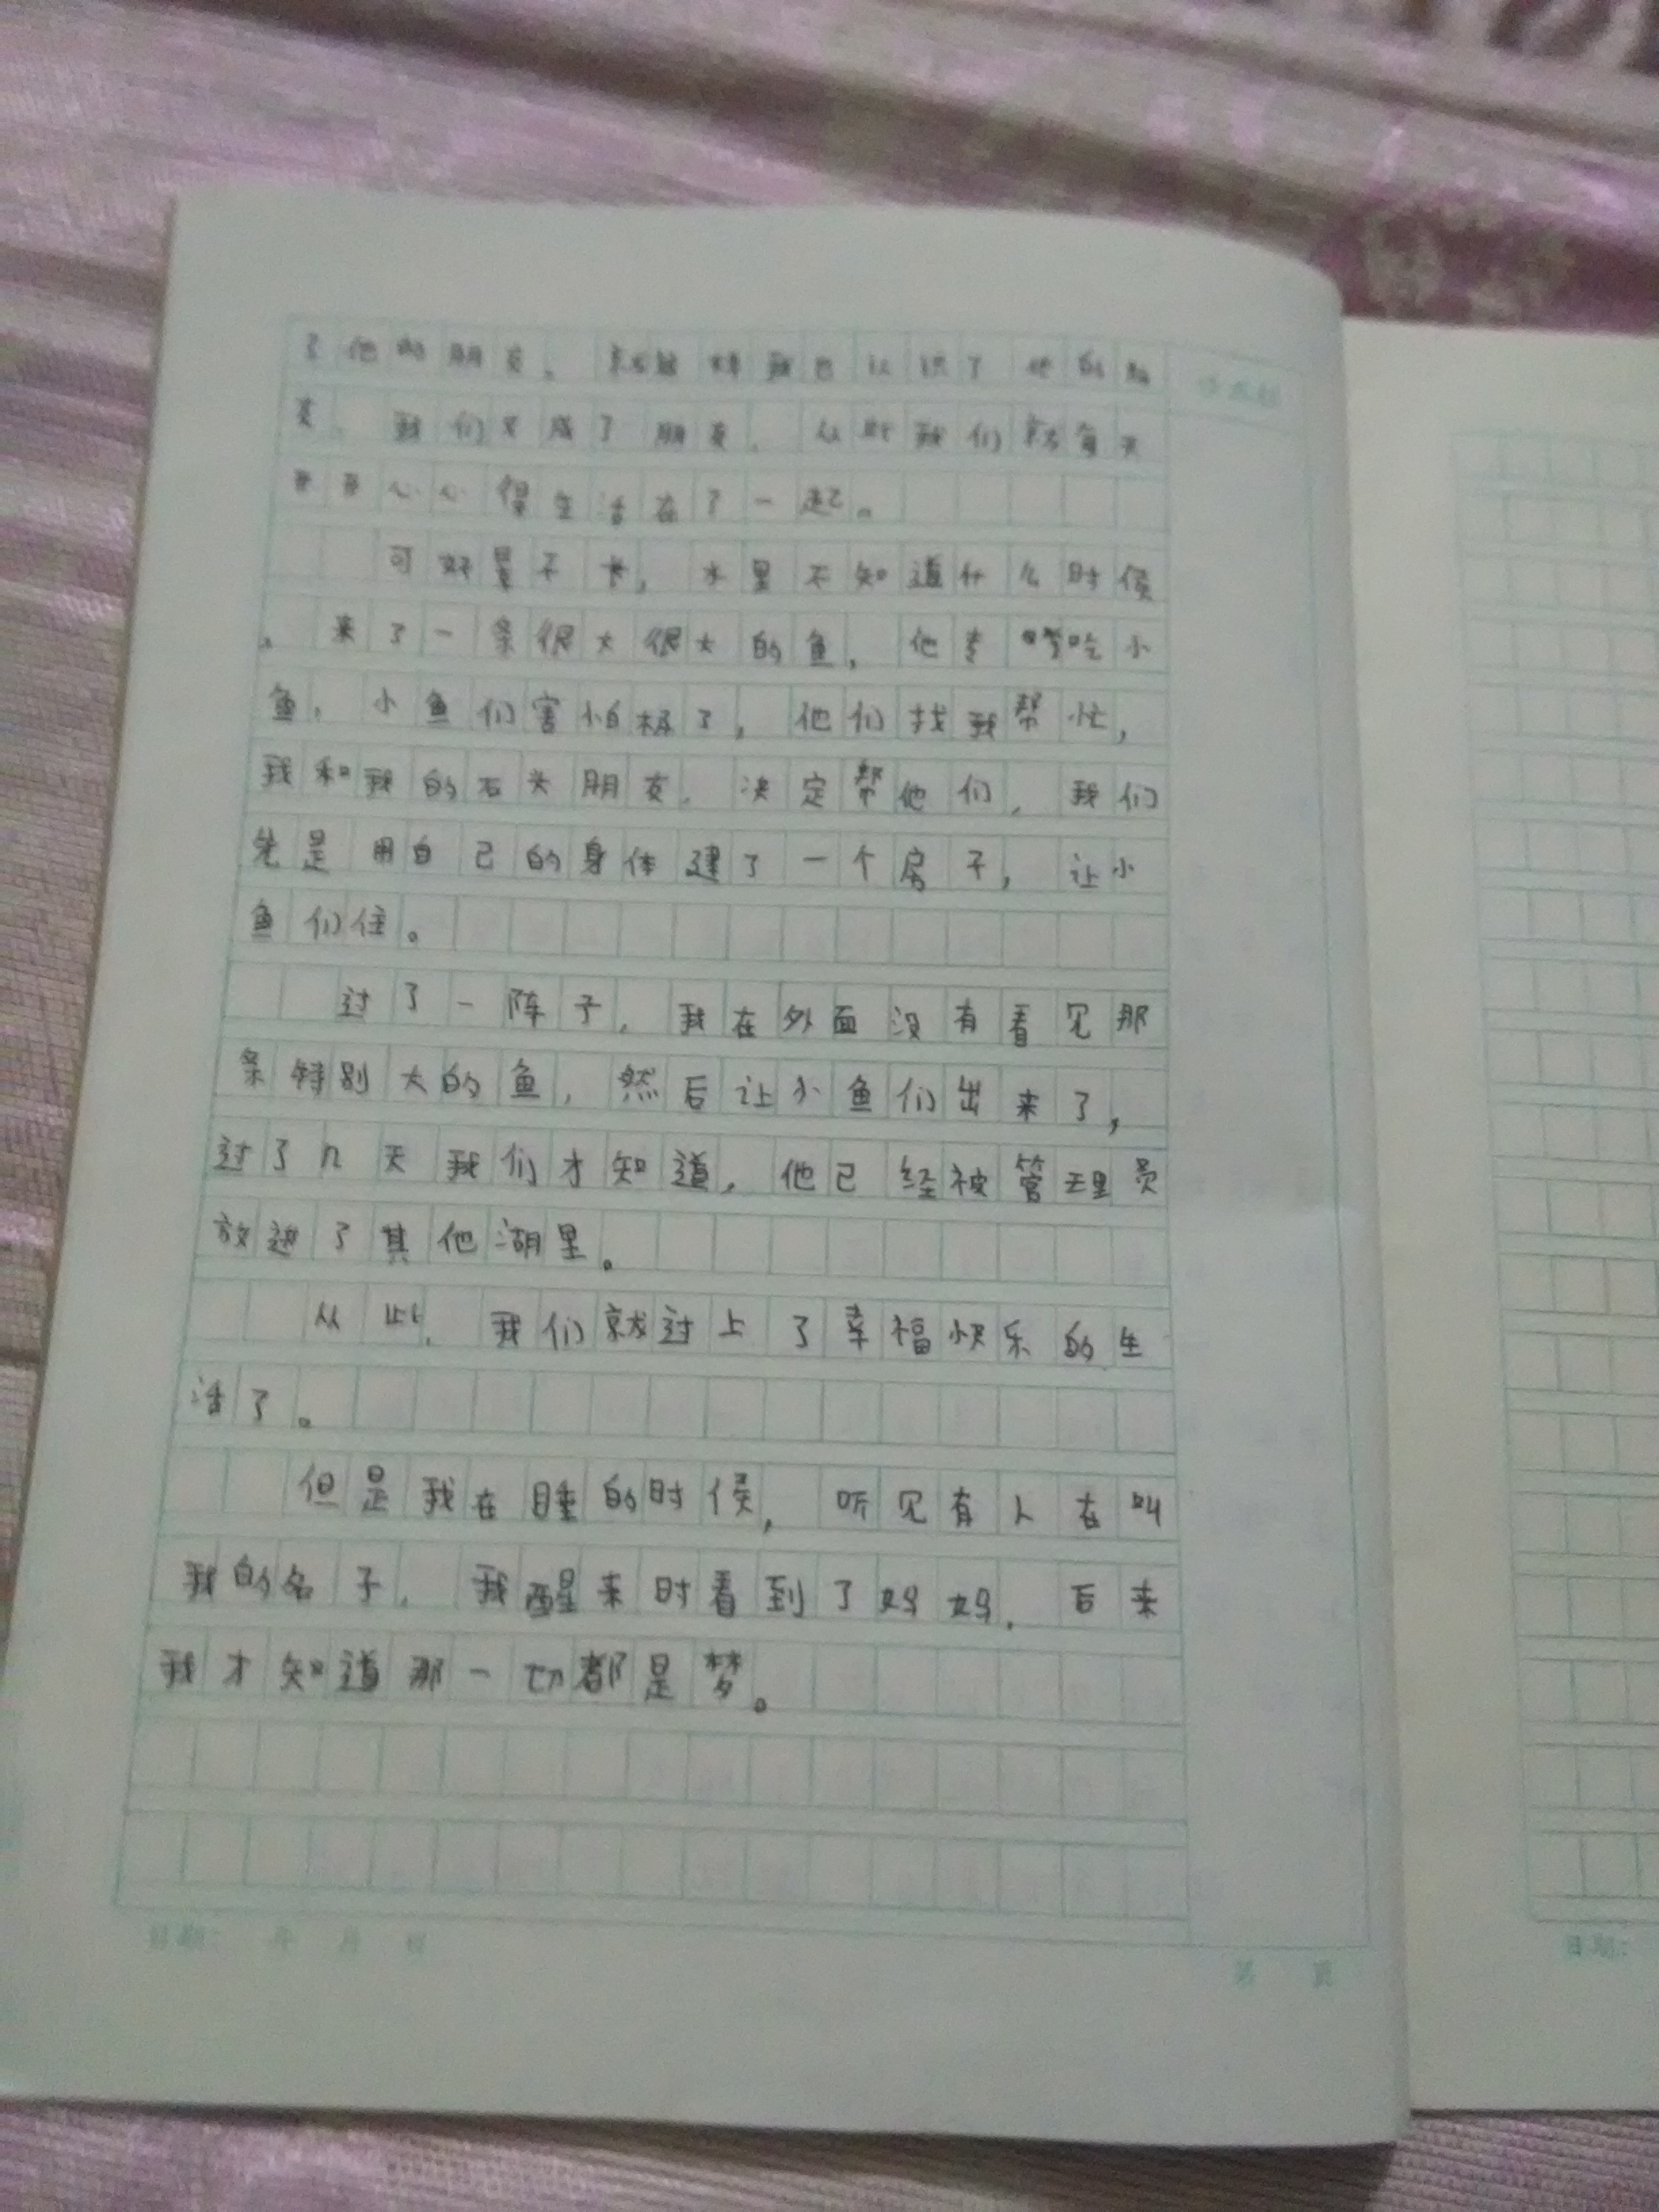 了他的朋友。就这样我也认识了他的朋
友。我们又成了朋友，从此我们就每天
开开心心得生活在了一起。
可好景不长，水里不知道什么时候
，来了一条很大很大的鱼，他专吃小
鱼，小鱼们害怕极了，他们找我帮忙，
我和我的石头朋友，决定帮他们，我们
先是用自己的身体建了一个房子，让小
鱼们住。
过了一阵子，我在外面没有看见那
条特别大的鱼，然后让小鱼们出来了，
过了几天我们才知道，他已经被管理员
放进了其他湖里。
从此，我们就过上了幸福快乐的生
活了。
但是我在睡的时候，听见有人在叫
我的名子，我醒来时看到了妈妈，后来
我才知道那一切都是梦。
日期： 年 月 日
第 页
日期：